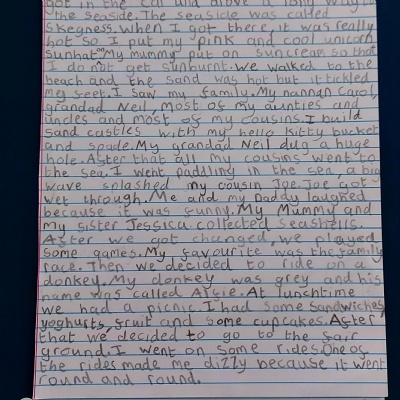 got in the car and drove a long way to
the seaside. The seaside was called
Skegness. When I got there it was really
hot so I put my pink and cool unicorn
sunhat on. My mummy put on suncream so that
I do not get sunburnt. We walked to the
beach and the sand was hot but it tickled
my feet. I saw my family. My nannan Carol,
grandad Neil, most of my aunties and
uncles and most of my cousins. I build
sand castles with my hello Kitty bucket
and spade. My grandad Neil dug a huge
hole. After that all my cousins went to
the sea. I went paddling in the sea, a big
wave splashed my cousin Joe. Joe got
wet through. Me and my Daddy laughed
because it was funny. My Mummy and
my sister Jessica collected seashells.
After we got changed, we played
some games. My favourite was the family
race. Then we decided to ride on a
donkey. My donkey was grey and his
name was called Alfie. At lunchtime
we had a picnic I had some sandwiches,
yoghurts, fruit and some cupcakes. After
that we decided to go to the fair
ground. I went on some rides. One of
the rides made me dizzy because it went
round and round.